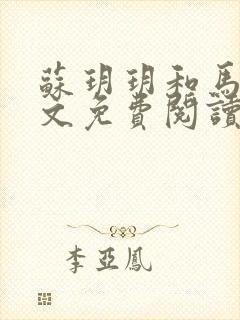 蘇玥玥和馬
文免費閱讀
李亞鳳